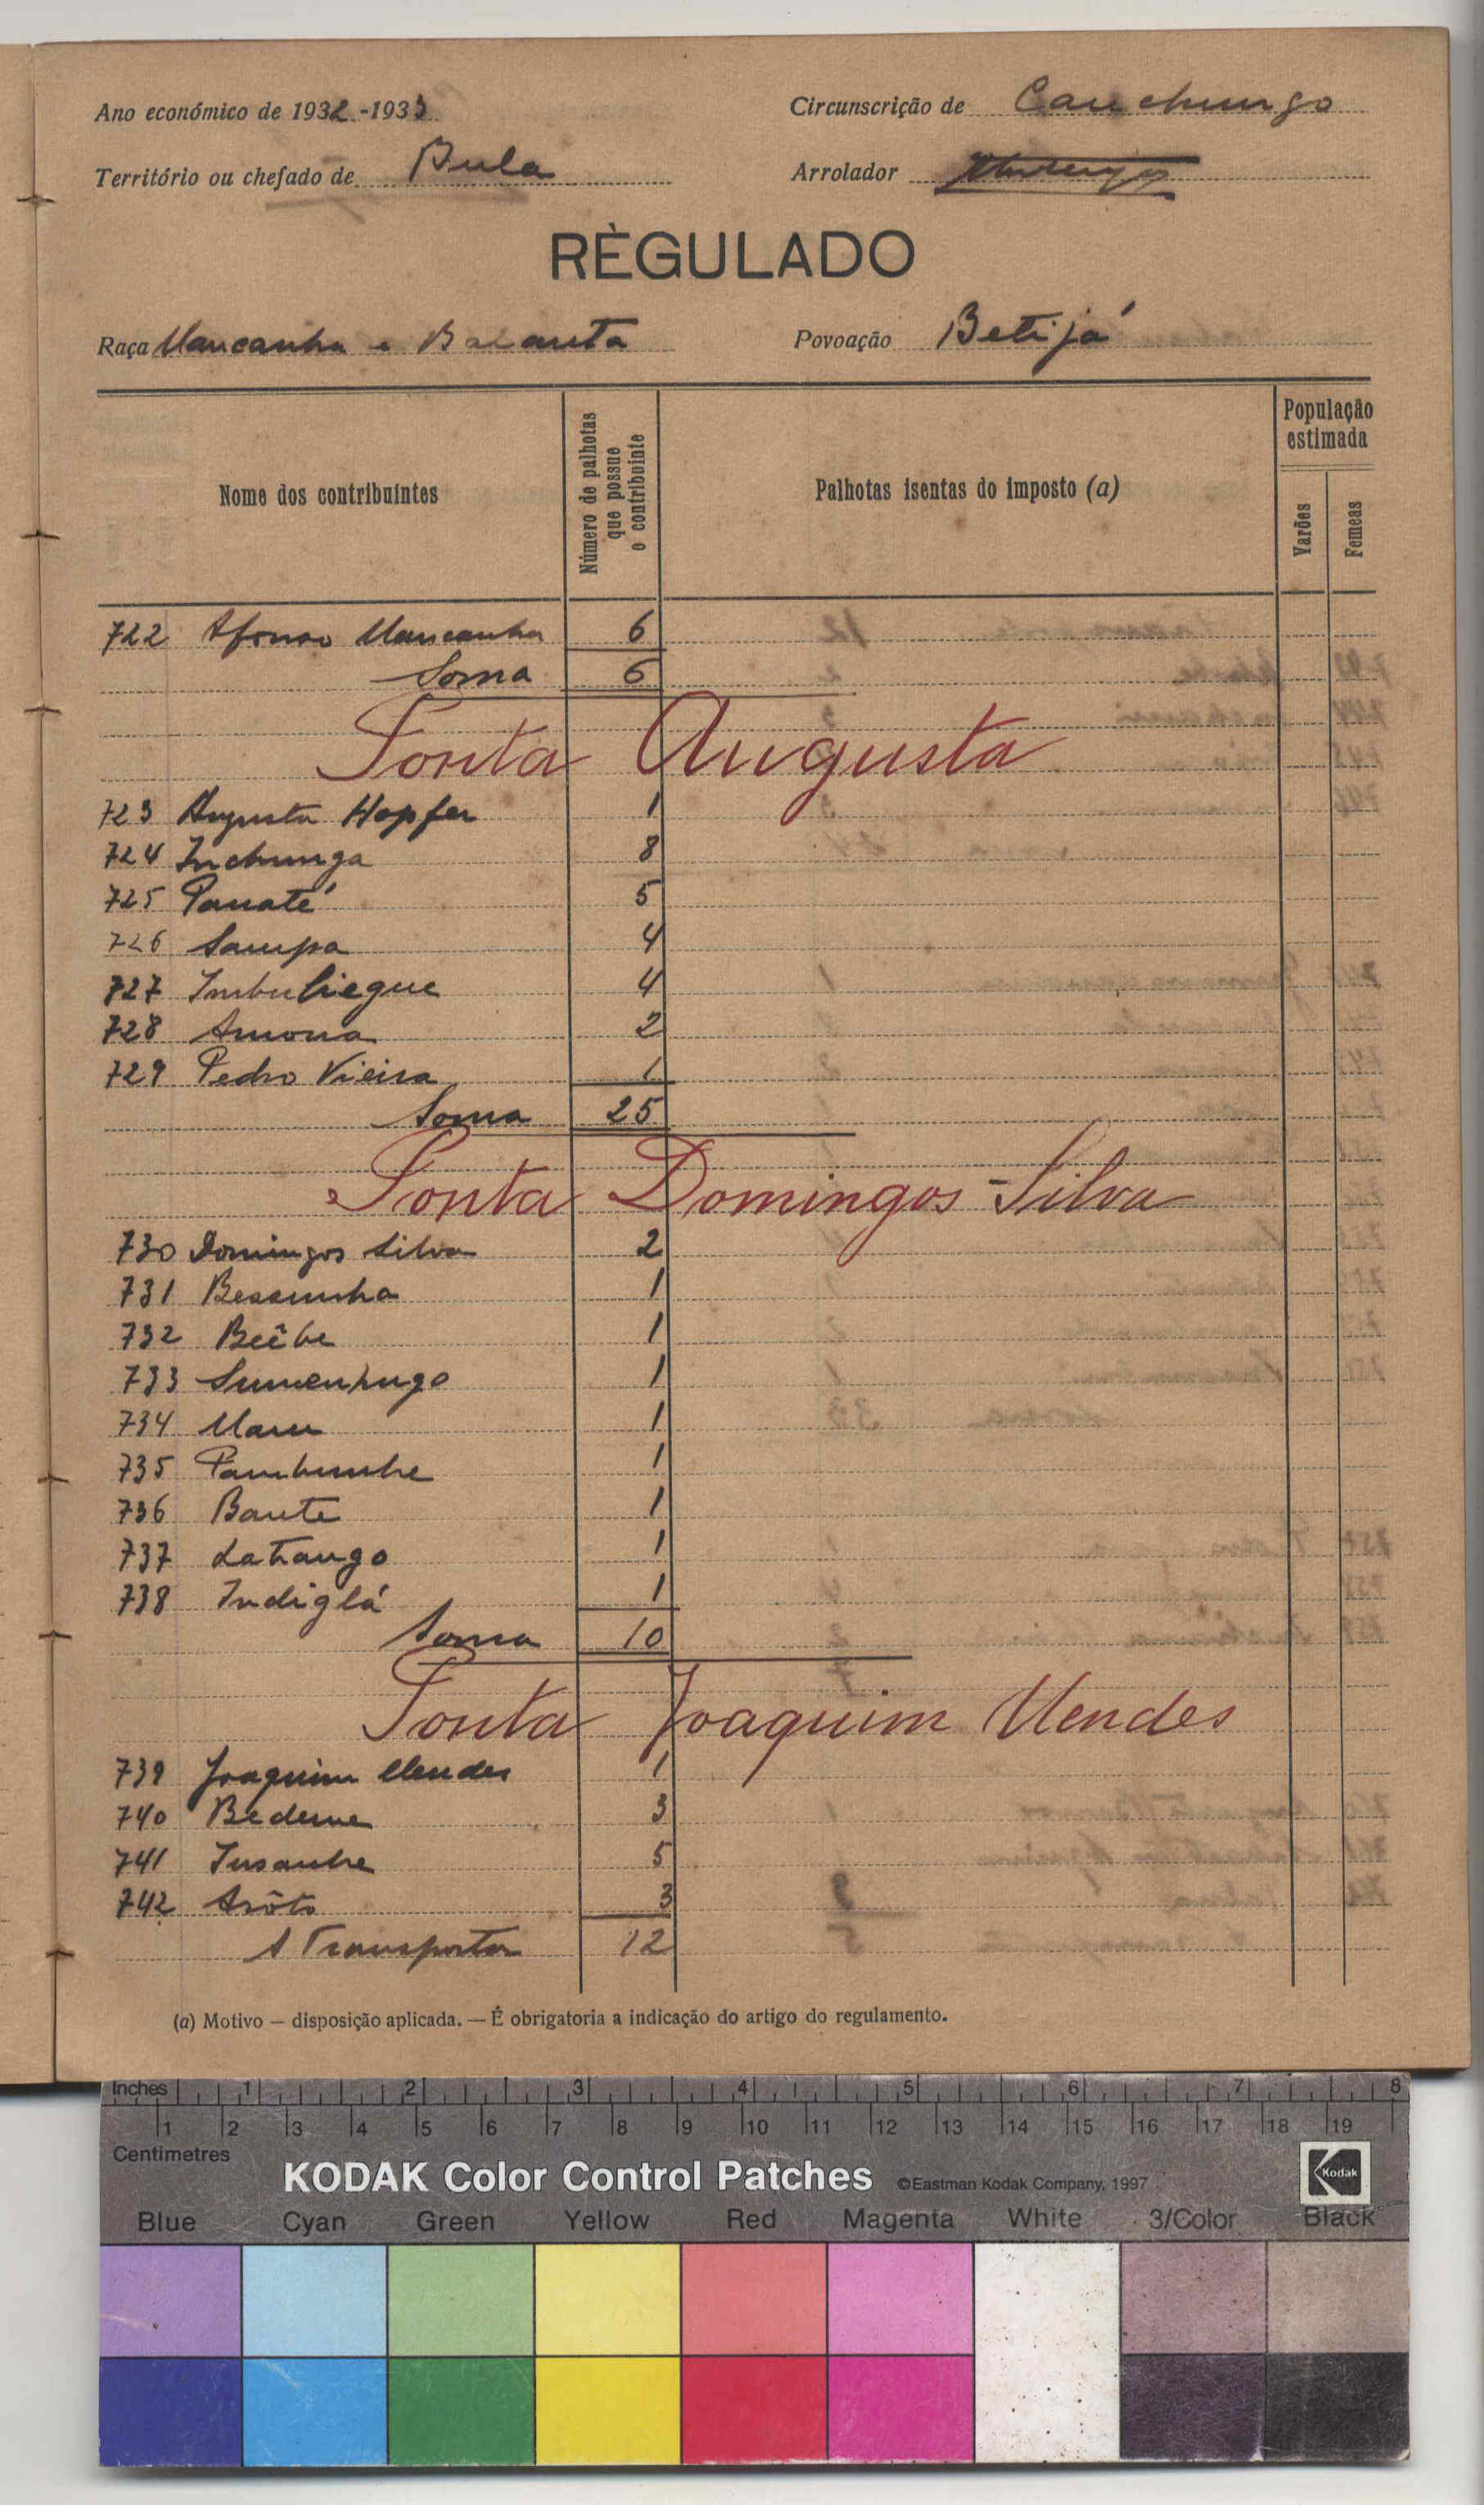 Ano económico de 1932-1933
Circunscrição de Canchungo
Território ou chefado de Bula
Arrolador
RÈGULADO
Raça Mancanha e Balanta
Povoação Betijá
Nome dos contribuintes
Número de palhotas que possue o contribuinte
Palhotas isentas do imposto (a)
População estimada
Varões
Femeas
722 Afonso Mancanha 6
Soma 6
Ponta Augusta
723 Augusta Hopfer 1
724 Inchunga 8
725 Panaté 5
726 Sampa 4
727 Imbuliegue 4
728 Amona 2
729 Pedro Vieira 1
Soma 25
Ponta Domingos Silva
730 Domingos Silva 2
731 Bessunha 1
732 Beêbe 1
733 1
734 1
735 1
736 Bante 1
737 Latango 1
738 Indiglá 1
Soma 10
Ponta Joaquim Mendes
739 Joaquim Mendes 1
740 Bedeme 3
741 Insanhe 5
742 Arôto 3
A Transportar 12
(a) Motivo — disposição aplicada. — É obrigatoria a indicação do artigo do regulamento.
Inches 1 2 3 4 5 6 7 8
1 2 3 4 5 6 7 8 9 10 11 12 13 14 15 16 17 18 19
Centimetres
KODAK Color Control Patches ©Eastman Kodak Company, 1997 Kodak
Blue Cyan Green Yellow Red Magenta White 3/Color Black